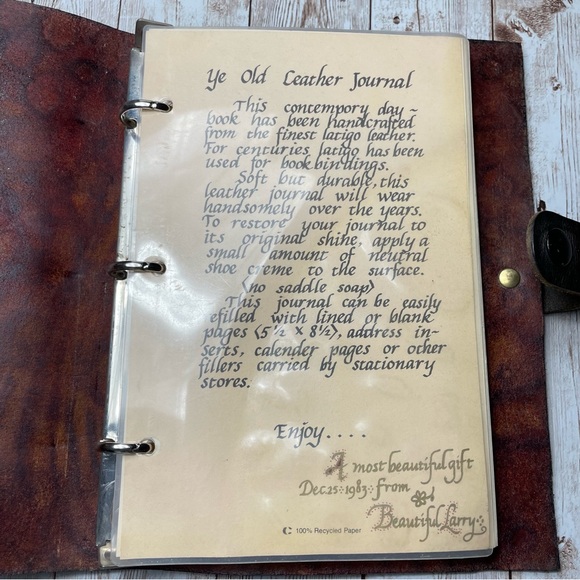 Ye Old Leather Journal
This contempory day-
book has been handcrafted
from the finest latigo leather.
For centuries latigo has been
used for bookbindings.
Soft but durable, this
leather journal will wear
handsomely over the years.
To restore your journal to
its original shine, apply a
small amount of neutral
shoe creme to the surface.
(no saddle soap)
This journal can be easily
refilled with lined or blank
pages (5½ x 8½), address in-
serts, calender pages or other
fillers carried by stationary
stores.
Enjoy....
A most beautiful gift
Dec. 25 · 1983 · from
Beautiful Larry
100% Recycled Paper